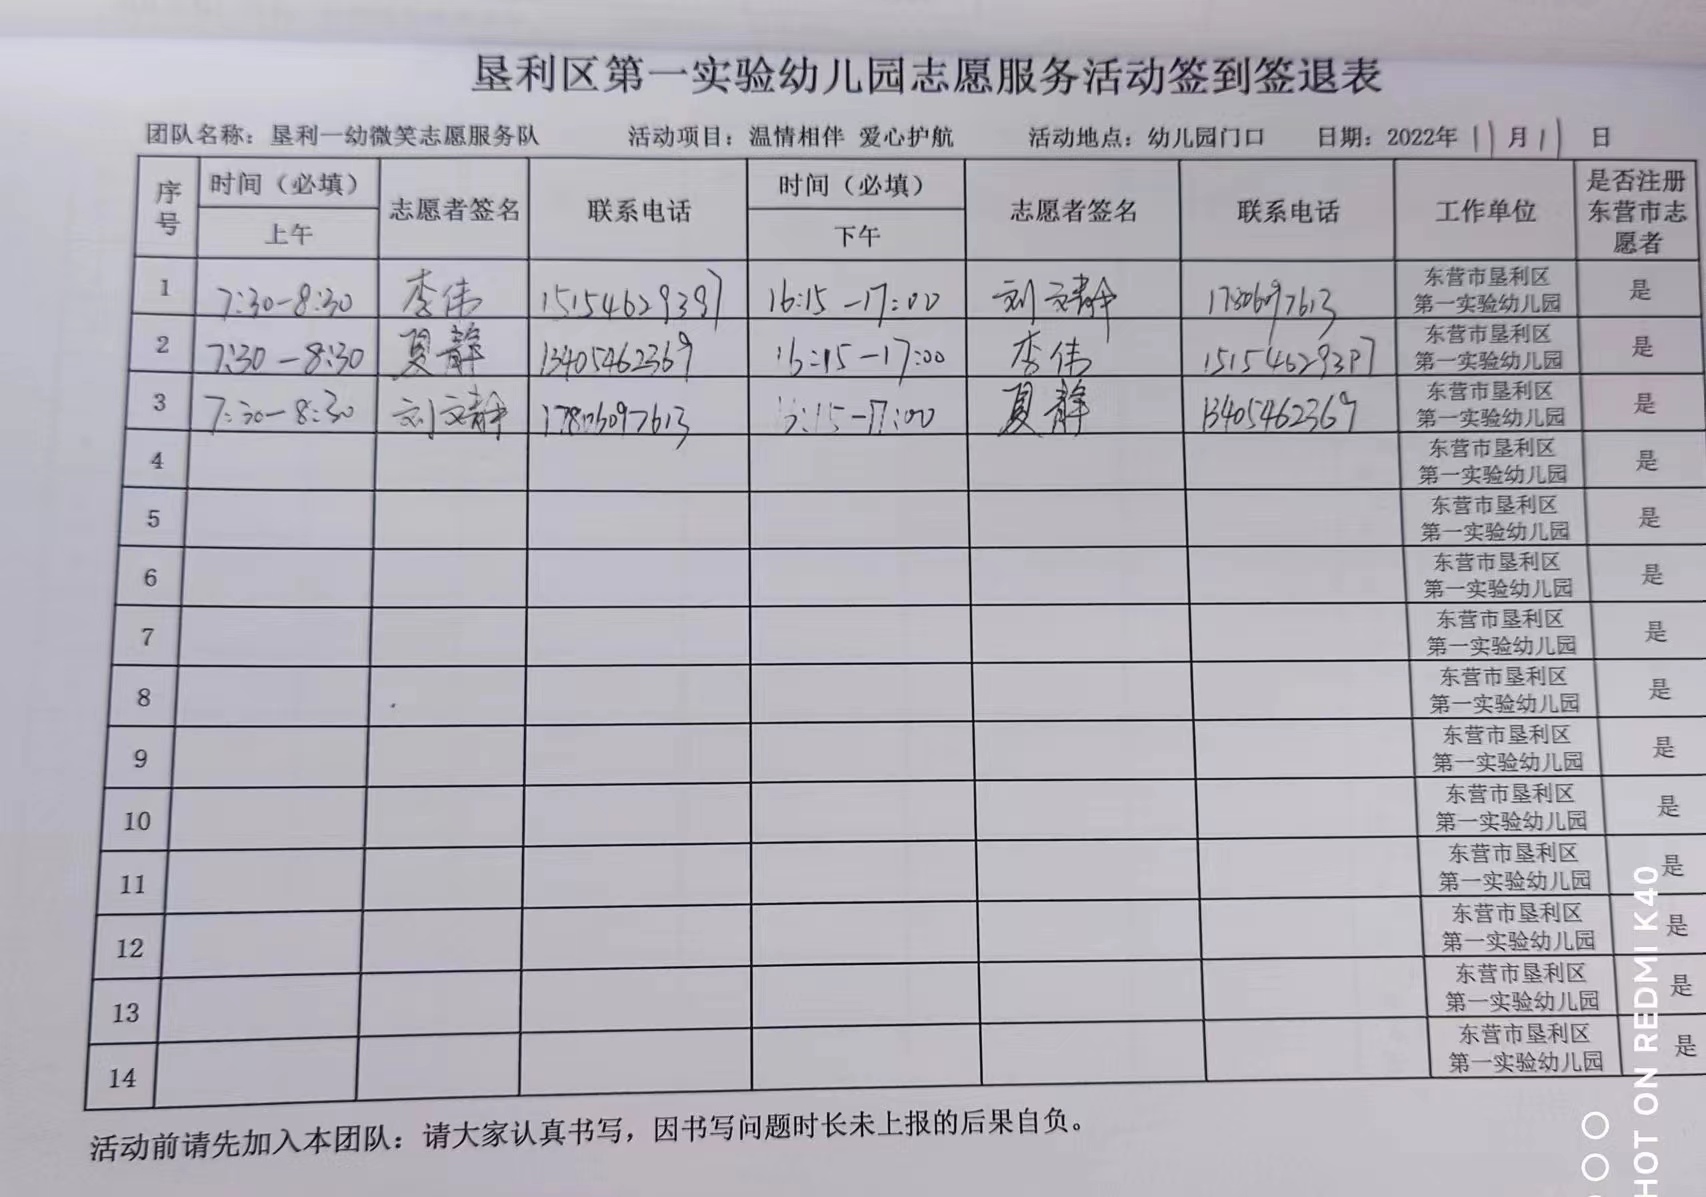 垦利区第一实验幼儿园志愿服务活动签到签退表
团队名称：垦利一幼微笑志愿服务队 活动项目：温情相伴 爱心护航 活动地点：幼儿园门口 日期：2022年11月11日
序号 时间（必填） 志愿者签名 联系电话 时间（必填） 志愿者签名 联系电话 工作单位 是否注册东营市志愿者
上午 下午
1 7:30-8:30 李伟 15154629397 16:15-17:00 刘文静 17806097613 东营市垦利区第一实验幼儿园 是
2 7:30-8:30 夏静 13405462369 16:15-17:00 李伟 15154629397 东营市垦利区第一实验幼儿园 是
3 7:30-8:30 刘文静 17806097613 :15-17:00 夏静 13405462369 东营市垦利区第一实验幼儿园 是
4 东营市垦利区第一实验幼儿园 是
5 东营市垦利区第一实验幼儿园 是
6 东营市垦利区第一实验幼儿园 是
7 东营市垦利区第一实验幼儿园 是
8 东营市垦利区第一实验幼儿园 是
9 东营市垦利区第一实验幼儿园 是
10 东营市垦利区第一实验幼儿园 是
11 东营市垦利区第一实验幼儿园 是
12 东营市垦利区第一实验幼儿园 是
13 东营市垦利区第一实验幼儿园 是
14 东营市垦利区第一实验幼儿园 是
活动前请先加入本团队：请大家认真书写，因书写问题时长未上报的后果自负。
HOT ON REDMI K40